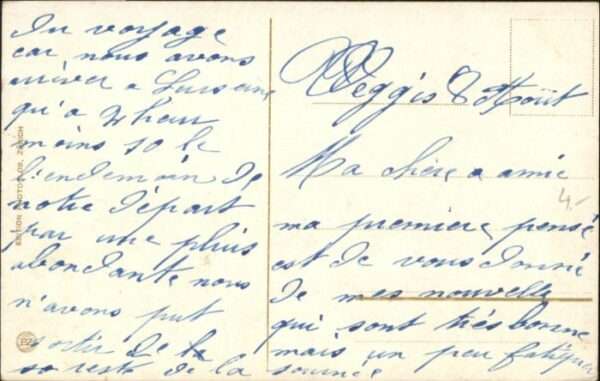 Weggis 8 Août
Ma chère amie
ma premiere pensé
est de vous donné
de mes nouvelle
qui sont très bonne
mais un peu fatiguer
du voyage
car nous avons
arriver a
qu'a heur
moins 10 le
lendemain de
notre départ
par une pluis
abondante nous
n'avons put
sortir de la
so reste de la journée
EDITION PHOTOGLOB, ZÜRICH
PZ
4.-